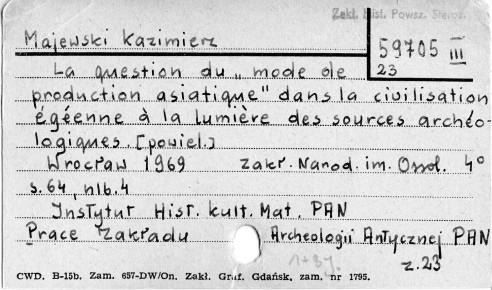 Zakł. Hist. Powsz. Staroż.
Majewski Kazimierz
59705 III
23
La question du „mode de
production asiatique" dans la civilisation
égéenne à la lumière des sources archéo-
logiques. [powiel.]
Wrocław 1969 zakł. Narod. im. Ossol. 4°
s. 64, nlb. 4
Instytut Hist. kult. Mat. PAN
Prace zakładu Archeologii Antycznej PAN
z. 23
CWD. B-15b. Zam. 657-DW/On. Zakł. Graf. Gdańsk, zam. nr 1795.